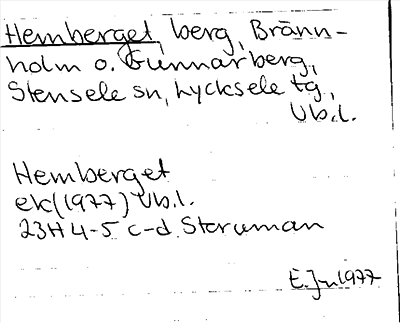 Hemberget, berg, Bränn-
holm o. Gunnarberg,
Stensele sn, Lycksele tg,
Vb.l.
Hemberget
ek (1977) Vb.l.
23H 4-5 c-d Storuman
E.Jn 1977